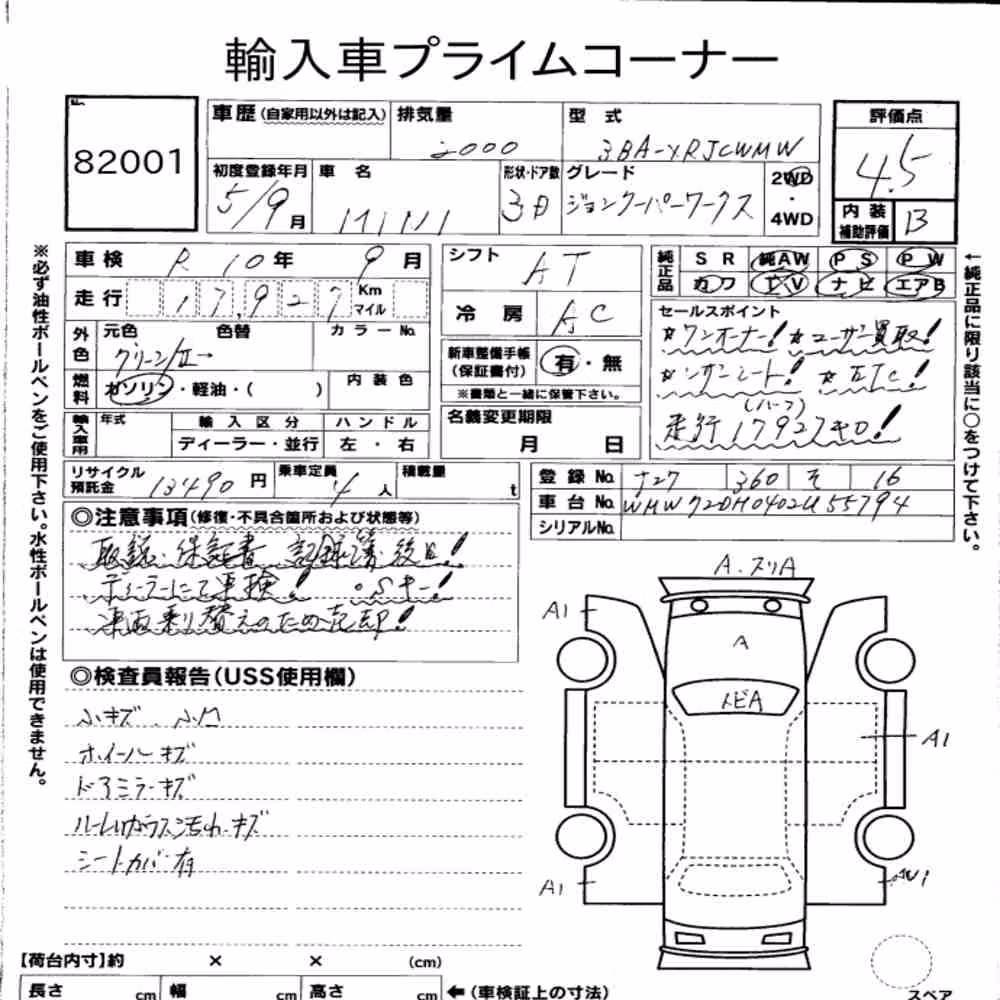 輸入車プライムコーナー
82001
車歴(自家用以外は記入)
排気量
2000
型式
3BA-XRJCWMW
評価点
4.5
初度登録年月
5/9月
車名
MINI
形状・ドア数
3D
グレード
ジョンクーパーワークス
2WD
・
4WD
内装
補助評価
B
※必ず油性ボールペンをご使用下さい。水性ボールペンは使用できません。
車検
R10年 9月
走行
17,927
Km
マイル
シフト
AT
冷房
AC
純正品
SR 純AW PS PW
カワ TV ナビ エアB
←純正品に限り該当に○をつけて下さい。
外色
元色
色替
カラーNo.
グリーン/II→
燃料
ガソリン・軽油・( )
内装色
輸入車用
年式
輸入区分
ディーラー・並行
ハンドル
左・右
新車整備手帳
(保証書付)
有・無
※書類と一緒に保管下さい。
名義変更期限
月 日
セールスポイント
☆ワンオーナー! ☆ユーザー買取!
☆レザーシート! ☆ETC!
(ハーフ)
走行17927キロ!
リサイクル
預託金
13490円
乗車定員
4人
積載量
t
登録No.
ナ27 360 そ 16
車台No.
WMW72DH0402U55794
シリアルNo.
◎注意事項(修復・不具合箇所および状態等)
取説・保証書・記録簿後日!
ディーラーにて車検! ・Sキー!
車両乗り替えのため売却!
◎検査員報告(USS使用欄)
小キズ、小凹
ホイールキズ
ドアミラーキズ
ルームガラス汚れ・キズ
シートカバー有
A.スリA
A1
A
トビA
A1
A1
AW1
スペア
【荷台内寸】約 × × (cm)
長さ cm 幅 cm 高さ cm ←(車検証上の寸法)